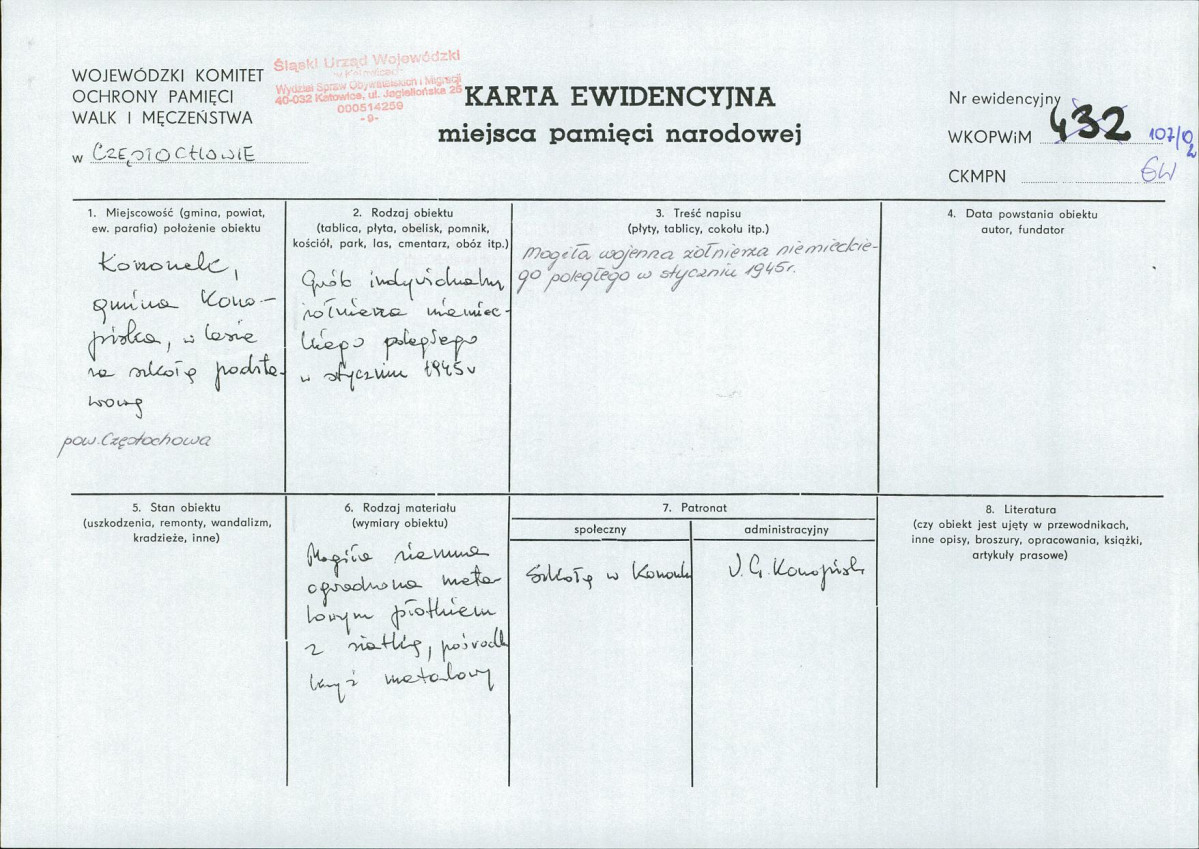 WOJEWÓDZKI KOMITET
OCHRONY PAMIĘCI
WALK I MĘCZEŃSTWA
w CZĘSTOCHOWIE
Śląski Urząd Wojewódzki
w Katowicach
Wydział Spraw Obywatelskich i Migracji
40-032 Katowice, ul. Jagiellońska 25
000514259
-9-
KARTA EWIDENCYJNA
miejsca pamięci narodowej
Nr ewidencyjny
WKOPWiM 432 107/02
CKMPN GW
1. Miejscowość (gmina, powiat,
ew. parafia) położenie obiektu
gmina Kono-
piska, w lesie
za szkołą podsta-
wową
pow. Częstochowa
2. Rodzaj obiektu
(tablica, płyta, obelisk, pomnik,
kościół, park, las, cmentarz, obóz itp.)
Grób indywidualny
żołnierza niemiec-
kiego poległego
w styczniu 1945 r
3. Treść napisu
(płyty, tablicy, cokołu itp.)
Mogiła wojenna żołnierza niemieckie-
go poległego w styczniu 1945r.
4. Data powstania obiektu
autor, fundator
5. Stan obiektu
(uszkodzenia, remonty, wandalizm,
kradzieże, inne)
6. Rodzaj materiału
(wymiary obiektu)
Mogiła ziemna
ogrodzona meta-
lowym płotkiem
z siatką, pośrodku
krzyż metalowy
7. Patronat
społeczny
Szkoła w
administracyjny
U.G. Konopiska
8. Literatura
(czy obiekt jest ujęty w przewodnikach,
inne opisy, broszury, opracowania, książki,
artykuły prasowe)